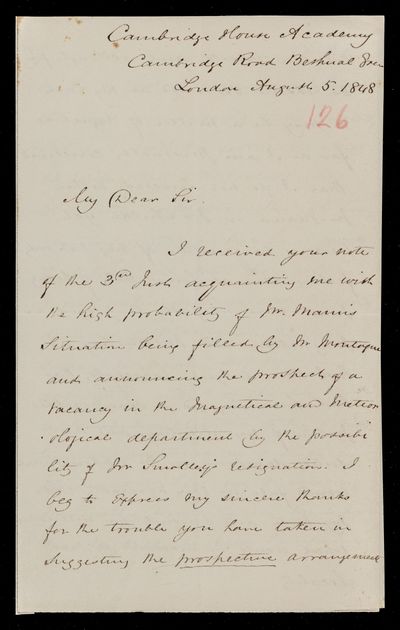 Cambridge House Academy
Cambridge Road Bethnal Green
London August 5. 1848
126
My Dear Sir.
I received your note
of the 3rd Inst acquainting me with
the high probability of Mr. Main's
Situation being filled by Mr Montague
and announcing the prospect of a
vacancy in the Magnetical and Meteor
-ological department by the possibi
lity of Mr Smalley's resignation. I
beg to express my sincere thanks
for the trouble you have taken in
suggesting the prospective arrangement